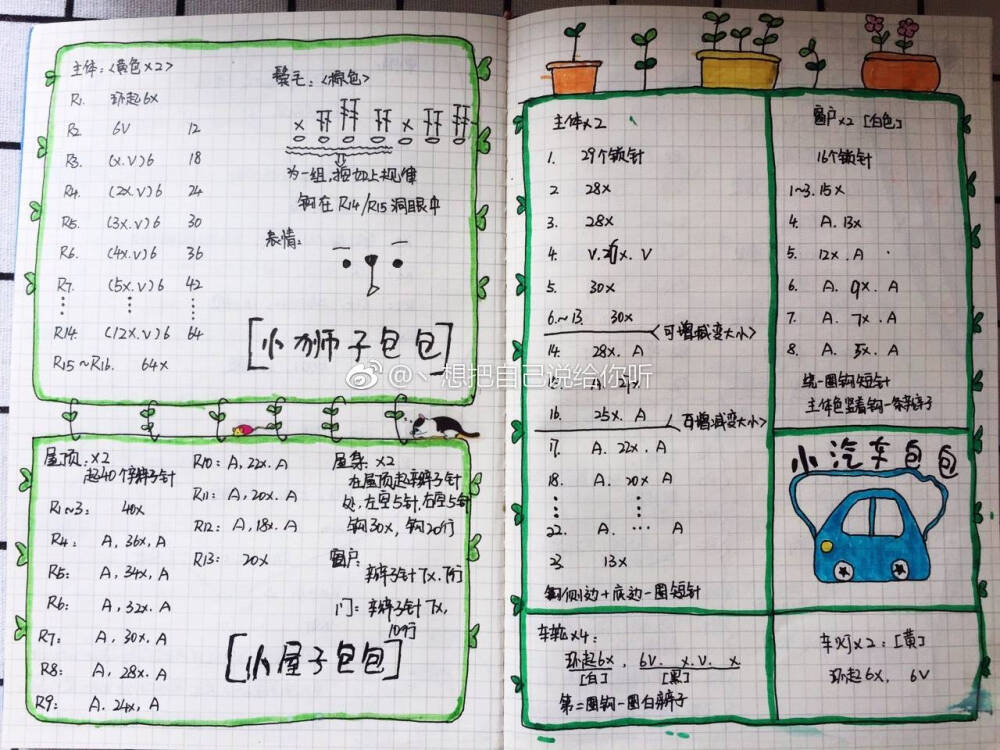 主体：<黄色x2>
R1. 环起6x
R2 6V 12
R3. (x.v)6 18
R4. (2x.v)6 24
R5. (3x.v)6 30
R6. (4x.v)6 36
R7. (5x.v)6 42
R14. (12x.v)6 64
R15~R16. 64x
鬃毛：<棕色>
为一组，按如上规律
钩在R14/R15洞眼中
表情：
[小狮子包包]
屋顶：x2
起40个辫子针
R1~3： 40x
R4： A, 36x, A
R5： A, 34x, A
R6： A, 32x. A
R7： A, 30x. A
R8： A, 28x. A
R9： A. 24x, A
R10：A, 22x. A
R11：A, 20x. A
R12：A, 18x. A
R13： 20x
屋身 x2
在屋顶起辫子针
处，左空5针，右空5针
钩30x，钩20行
窗户：
辫子针7x. 7行
门：辫子针7x，
10行
[小屋子包包]
主体x2
1. 29个锁针
2 28x
3. 28x
4. V. x. V
5. 30x
6.~13. 30x <可增减变大小>
14. 28x. A
15. A. 27x
16. 25x. A <可增减变大小>
17. A. 22x. A
18. A. 20x A
22. A. … A
23. 13x
钩侧边+底边一圈短针
窗户x2 [白色]
16个锁针
1~3. 15x
4. A. 13x
5. 12x. A
6. A. 9x. A
7. A. 7x. A
8. A. 5x. A
统一圈钩短针
主体色竖着钩一条辫子
小汽车包包
车轮x4：
环起6x， 6V. x.V. x
[白] [黑]
第二圈钩一圈白辫子
车灯x2：[黄]
环起6x， 6V
@丶想把自己说给你听